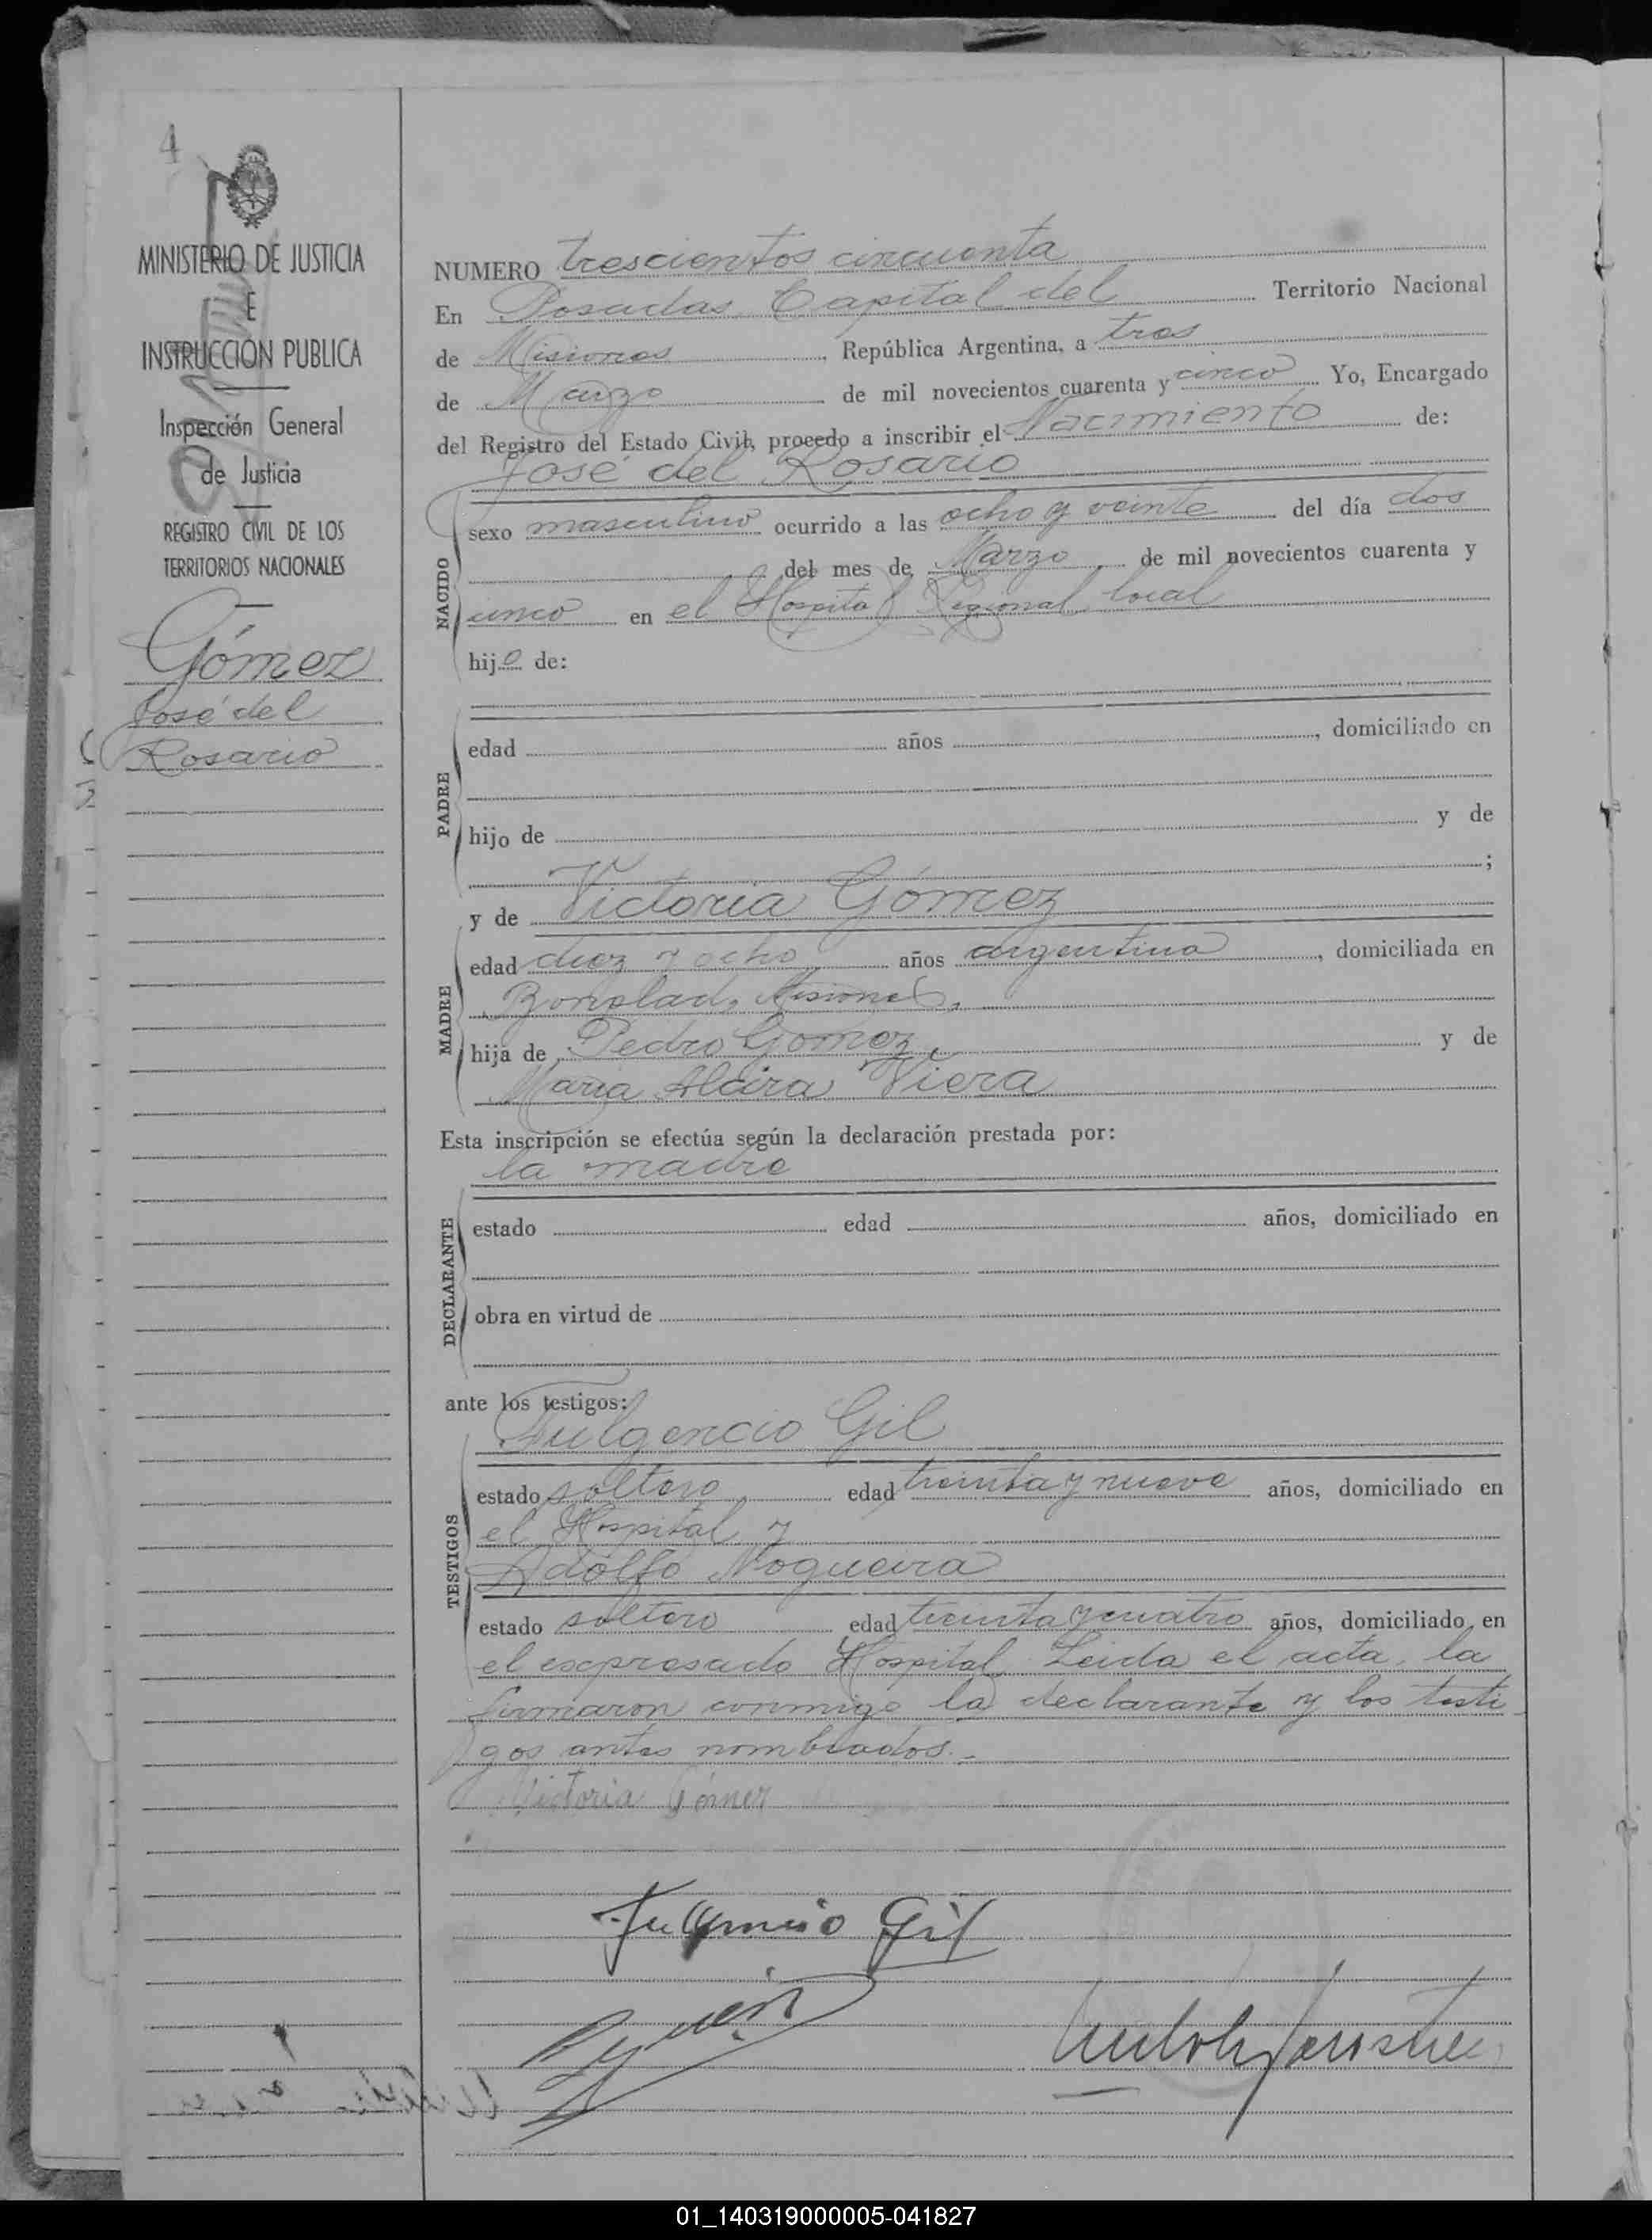 4
MINISTERIO DE JUSTICIA
E
INSTRUCCION PUBLICA
Inspección General
de Justicia
REGISTRO CIVIL DE LOS
TERRITORIOS NACIONALES
Gómez
José del
Rosario
NUMERO trescientos cincuenta
En Posadas, Capital del Territorio Nacional
de Misiones República Argentina, a tres
de Marzo de mil novecientos cuarenta y cinco Yo, Encargado
del Registro del Estado Civil, procedo a inscribir el Nacimiento de:
José del Rosario
NACIDO
sexo masculino ocurrido a las ocho y veinte del día dos
del mes de Marzo de mil novecientos cuarenta y
cinco en el Hospital Regional local
hijo de:
PADRE
edad años , domiciliado en
hijo de y de
;
y de Victoria Gómez
MADRE
edad diez y ocho años argentina , domiciliada en
Bonpland, Misiones,
hija de Pedro Gomez, y de
Maria Alcira Viera
Esta inscripción se efectúa según la declaración prestada por:
la madre
DECLARANTE
estado edad años, domiciliado en
obra en virtud de
ante los testigos:
Fulgencio Gil
TESTIGOS
estado soltero edad treinta y nueve años, domiciliado en
el Hospital y
Adolfo Nogueira
estado soltero edad treinta y cuatro años, domiciliado en
el expresado Hospital. Leida el acta, la
firmaron conmigo la declarante y los testi
gos antes nombrados.-
Victoria Gómez
Fulgencio Gil
01_140319000005-041827